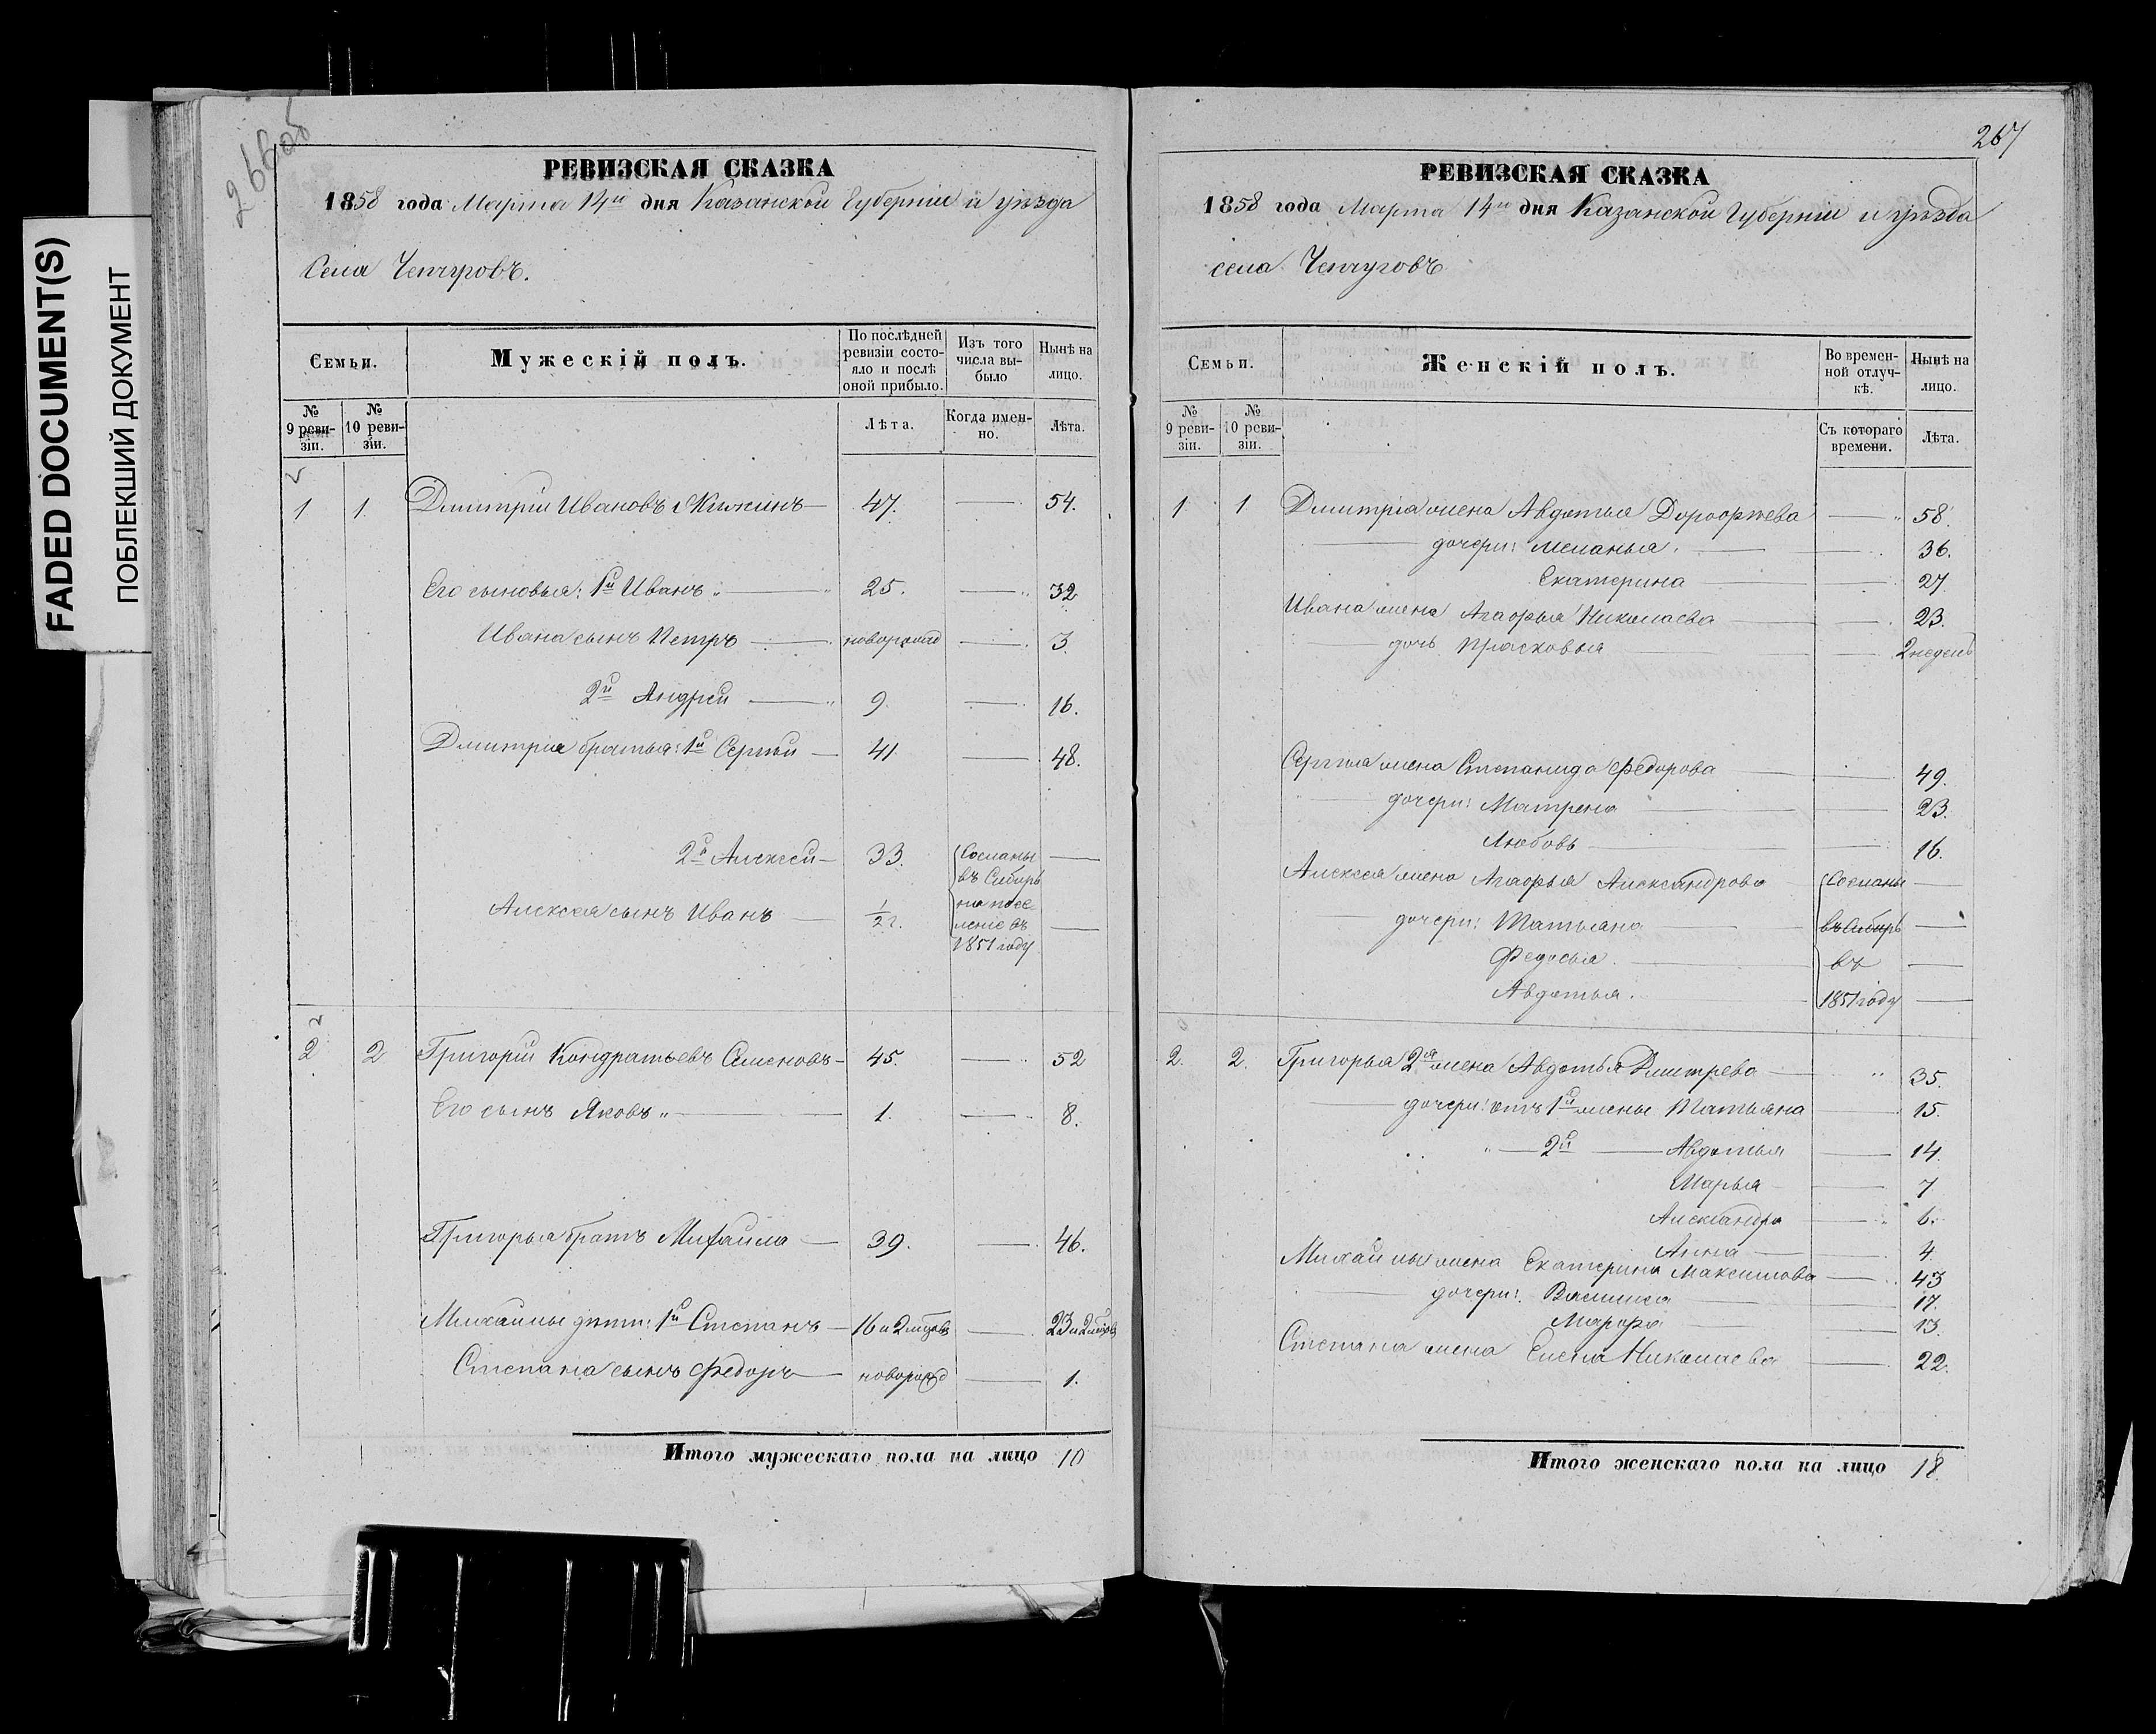 FADED DOCUMENT(S)
ПОБЛЕКШИЙ ДОКУМЕНТ
266об
РЕВИЗСКАЯ СКАЗКА
1858 года Марта 14го дня Казанской Губернiи и уѣзда
Села Чепчуговъ.
Семьи.
Мужескiй полъ.
По послѣдней ревизiи состояло и послѣ оной прибыло.
Изъ того числа выбыло
Нынѣ на лицо.
№ 9 ревизiи.
№ 10 ревизiи.
Лѣта.
Когда именно.
Лѣта.
1 1. Дмитрiй Ивановъ 47. 54.
Его сыновья: 1й Иванъ 25. 32
Ивана сынъ Петръ 3.
2й Андрей 9. 16.
Дмитрiя братья: 1й Сергѣй 41 48.
2й Алексѣй 33. Сосланы
въ Сибирь
Алексѣя сынъ Иванъ 1/2 г. на посе
ленiе въ
1851 году
2 2 Григорiй Кондратьевъ Семеновъ 45. 52
Его сынъ Яковъ 1. 8.
Григорья братъ Михайла 39. 46.
Михайлы дѣти: 1й Степанъ 16 и 2 23 и 2
Степана сынъ Федоръ 1.
Итого мужескаго пола на лицо 10
267
РЕВИЗСКАЯ СКАЗКА
1858 года Марта 14го дня Казанской Губернiи и уѣзда
села Чепчуговъ
Семьи.
Женскiй полъ.
Во временной отлучкѣ.
Нынѣ на лицо.
№ 9 ревизiи.
№ 10 ревизiи.
Съ котораго времени.
Лѣта.
1 1 Дмитрiя жена Авдотья Дорофѣева 58.
дочери: Меланья. 36.
Екатерина 27
Ивана жена Агафья Николаева 23.
дочь Прасковья 2 недели
Сергѣя жена Степанида Федорова 49.
дочери: Матрена 23.
Любовь 16.
Алексѣя жена Агафья Александрова Сосланы
дочери: Татьяна въ Сибирь
Федосья. въ
Авдотья. 1851 году
2. 2. Григорья 2я жена Авдотья Дмитрева 35.
дочери: отъ 1й жены Татьяна 15.
2й Авдотья 14.
Марья 7
Александра 6.
Анна 4.
Михайлы жена Екатерина Максимова 43
дочери: Василиса 17.
Марфа 13.
Степана жена Елена Николаева 22.
Итого женскаго пола на лицо 18.